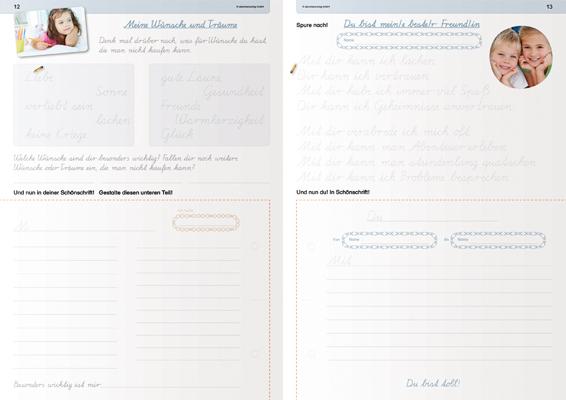 12
Meine Wünsche und Träume
Denk mal drüber nach, was für Wünsche du hast,
die man nicht kaufen kann.
Liebe
Sonne
verliebt sein
lachen
keine Kriege
gute Laune
Gesundheit
Freunde
Warmherzigkeit
Glück
Welche Wünsche sind dir besonders wichtig? Fallen dir noch weitere
Wünsche oder Träume ein, die man nicht kaufen kann?
Und nun in deiner Schönschrift! Gestalte diesen unteren Teil!
M
Besonders wichtig ist mir:
13
Spure nach!
Du bist mein/e beste/r Freund/in
Name
Mit dir kann ich lachen.
Dir kann ich vertrauen.
Mit dir habe ich immer viel Spaß.
Dir kann ich Geheimnisse anvertrauen.
Mit dir verabrede ich mich oft.
Mit dir kann man Abenteuer erleben.
Mit dir kann man stundenlang quatschen.
Mit dir kann ich Probleme besprechen.
Und nun du! In Schönschrift!
Du
Von Name An Name
Mit
Du bist toll!